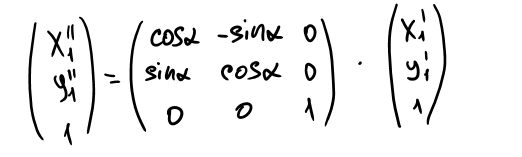 (x₁'' y₁'' 1) = (cosα -sinα 0
sinα cosα 0
0 0 1) · (x₁' y₁' 1)